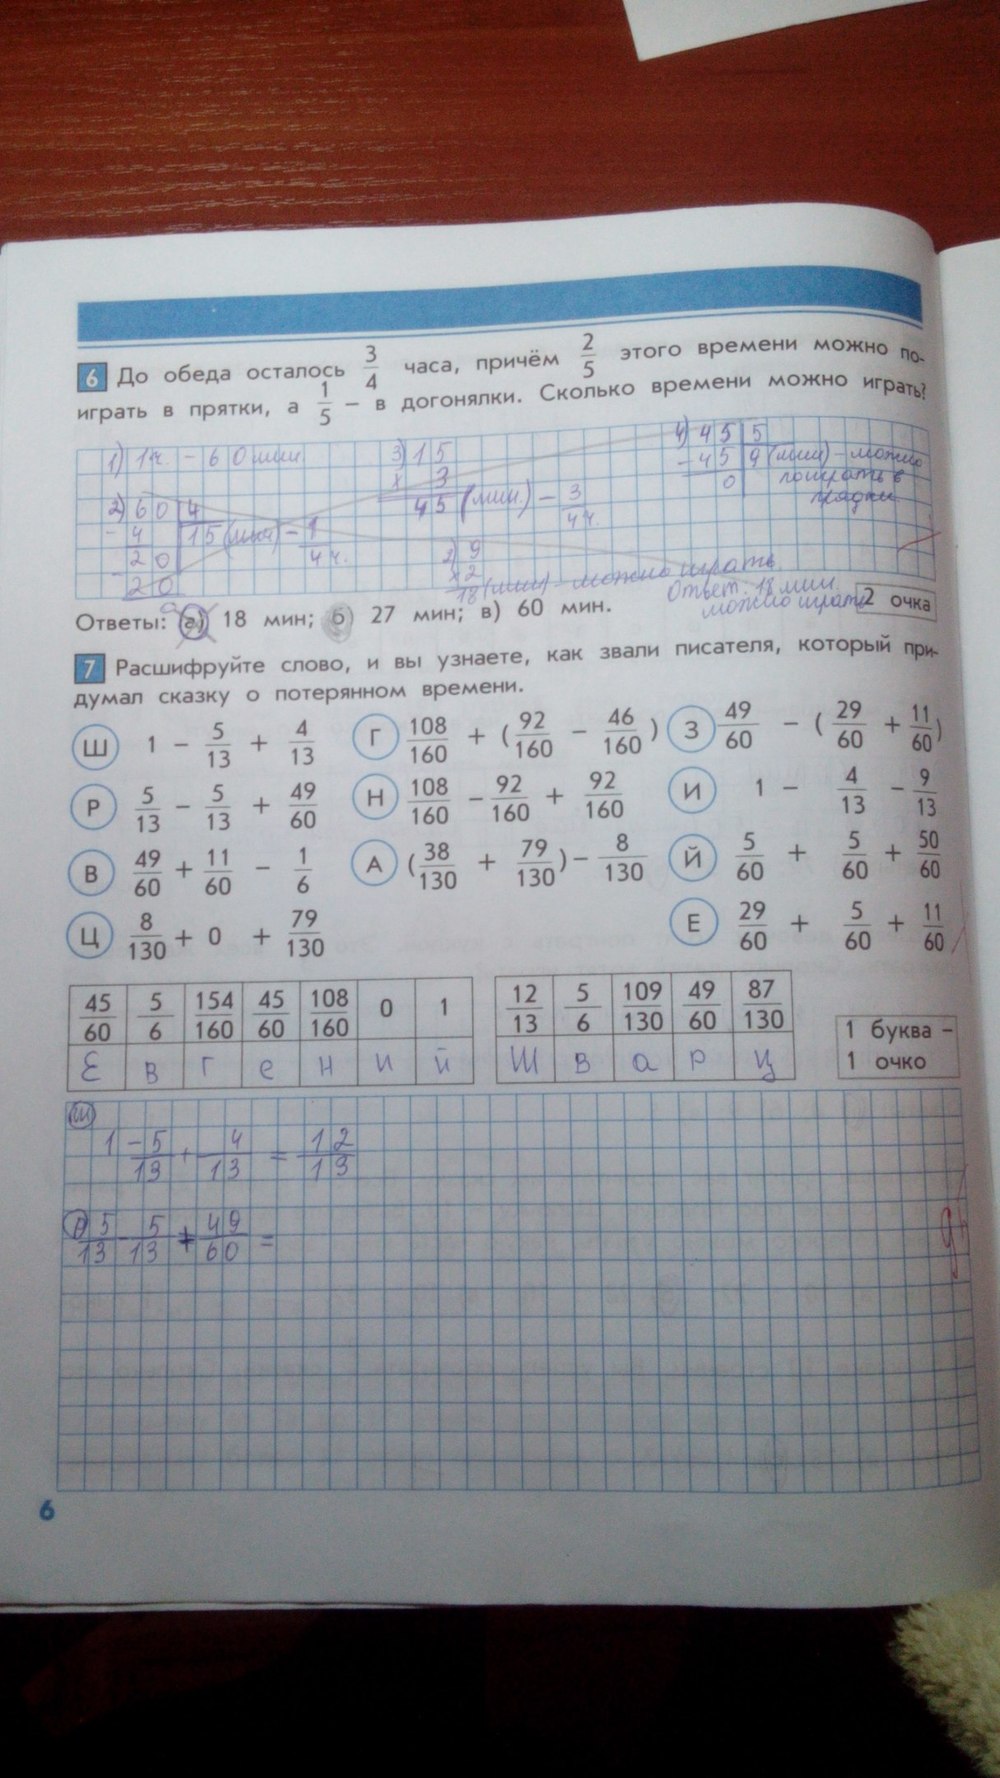 6 До обеда осталось 3/4 часа, причём 2/5 этого времени можно по-
играть в прятки, а 1/5 – в догонялки. Сколько времени можно играть?
1) 1ч. - 60 мин
3) 15
× 3
45 (мин.) - 3/4 ч.
4) 45 | 5
- 45 9 (мин) - можно
0 поиграть в
прядки
2) 60 | 4
- 4 15 (мин) - 1/4 ч.
- 20
20
2) 9
×2
18 (мин) - можно играть
Ответ: 18 мин.
можно играть
Ответы: а) 18 мин; б) 27 мин; в) 60 мин.
2 очка
7 Расшифруйте слово, и вы узнаете, как звали писателя, который при-
думал сказку о потерянном времени.
Ш 1 – 5/13 + 4/13 Г 108/160 + (92/160 – 46/160) З 49/60 – (29/60 + 11/60)
Р 5/13 – 5/13 + 49/60 Н 108/160 – 92/160 + 92/160 И 1 – 4/13 – 9/13
В 49/60 + 11/60 – 1/6 А (38/130 + 79/130) – 8/130 Й 5/60 + 5/60 + 50/60
Ц 8/130 + 0 + 79/130 Е 29/60 + 5/60 + 11/60
45/60 5/6 154/160 45/60 108/160 0 1
Е в г е н и й
12/13 5/6 109/130 49/60 87/130
Ш в а р ц
1 буква –
1 очко
Ш
1 - 5/13 + 4/13 = 12/13
Р 5/13 - 5/13 + 49/60 =
6